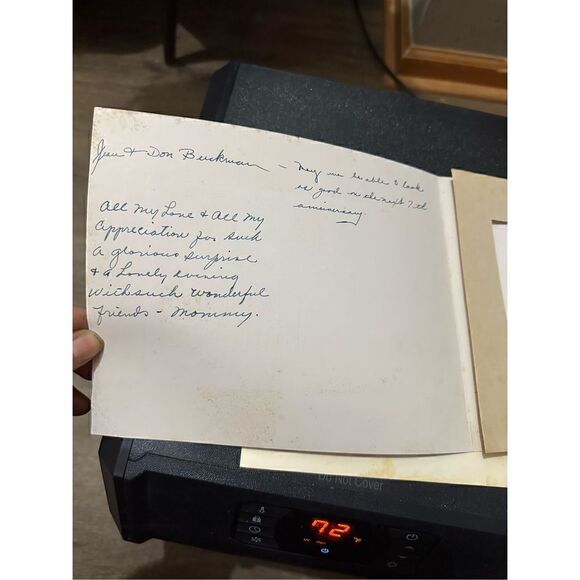 Jean & Don Buckman — may we be able to look
as good on the next 7 ed
anniversary.
All My Love & All My
Appreciation for such
a glorious surprise
& a Lovely evening
With such wonderful
friends - Mommy.
Do Not Cover
72
°F